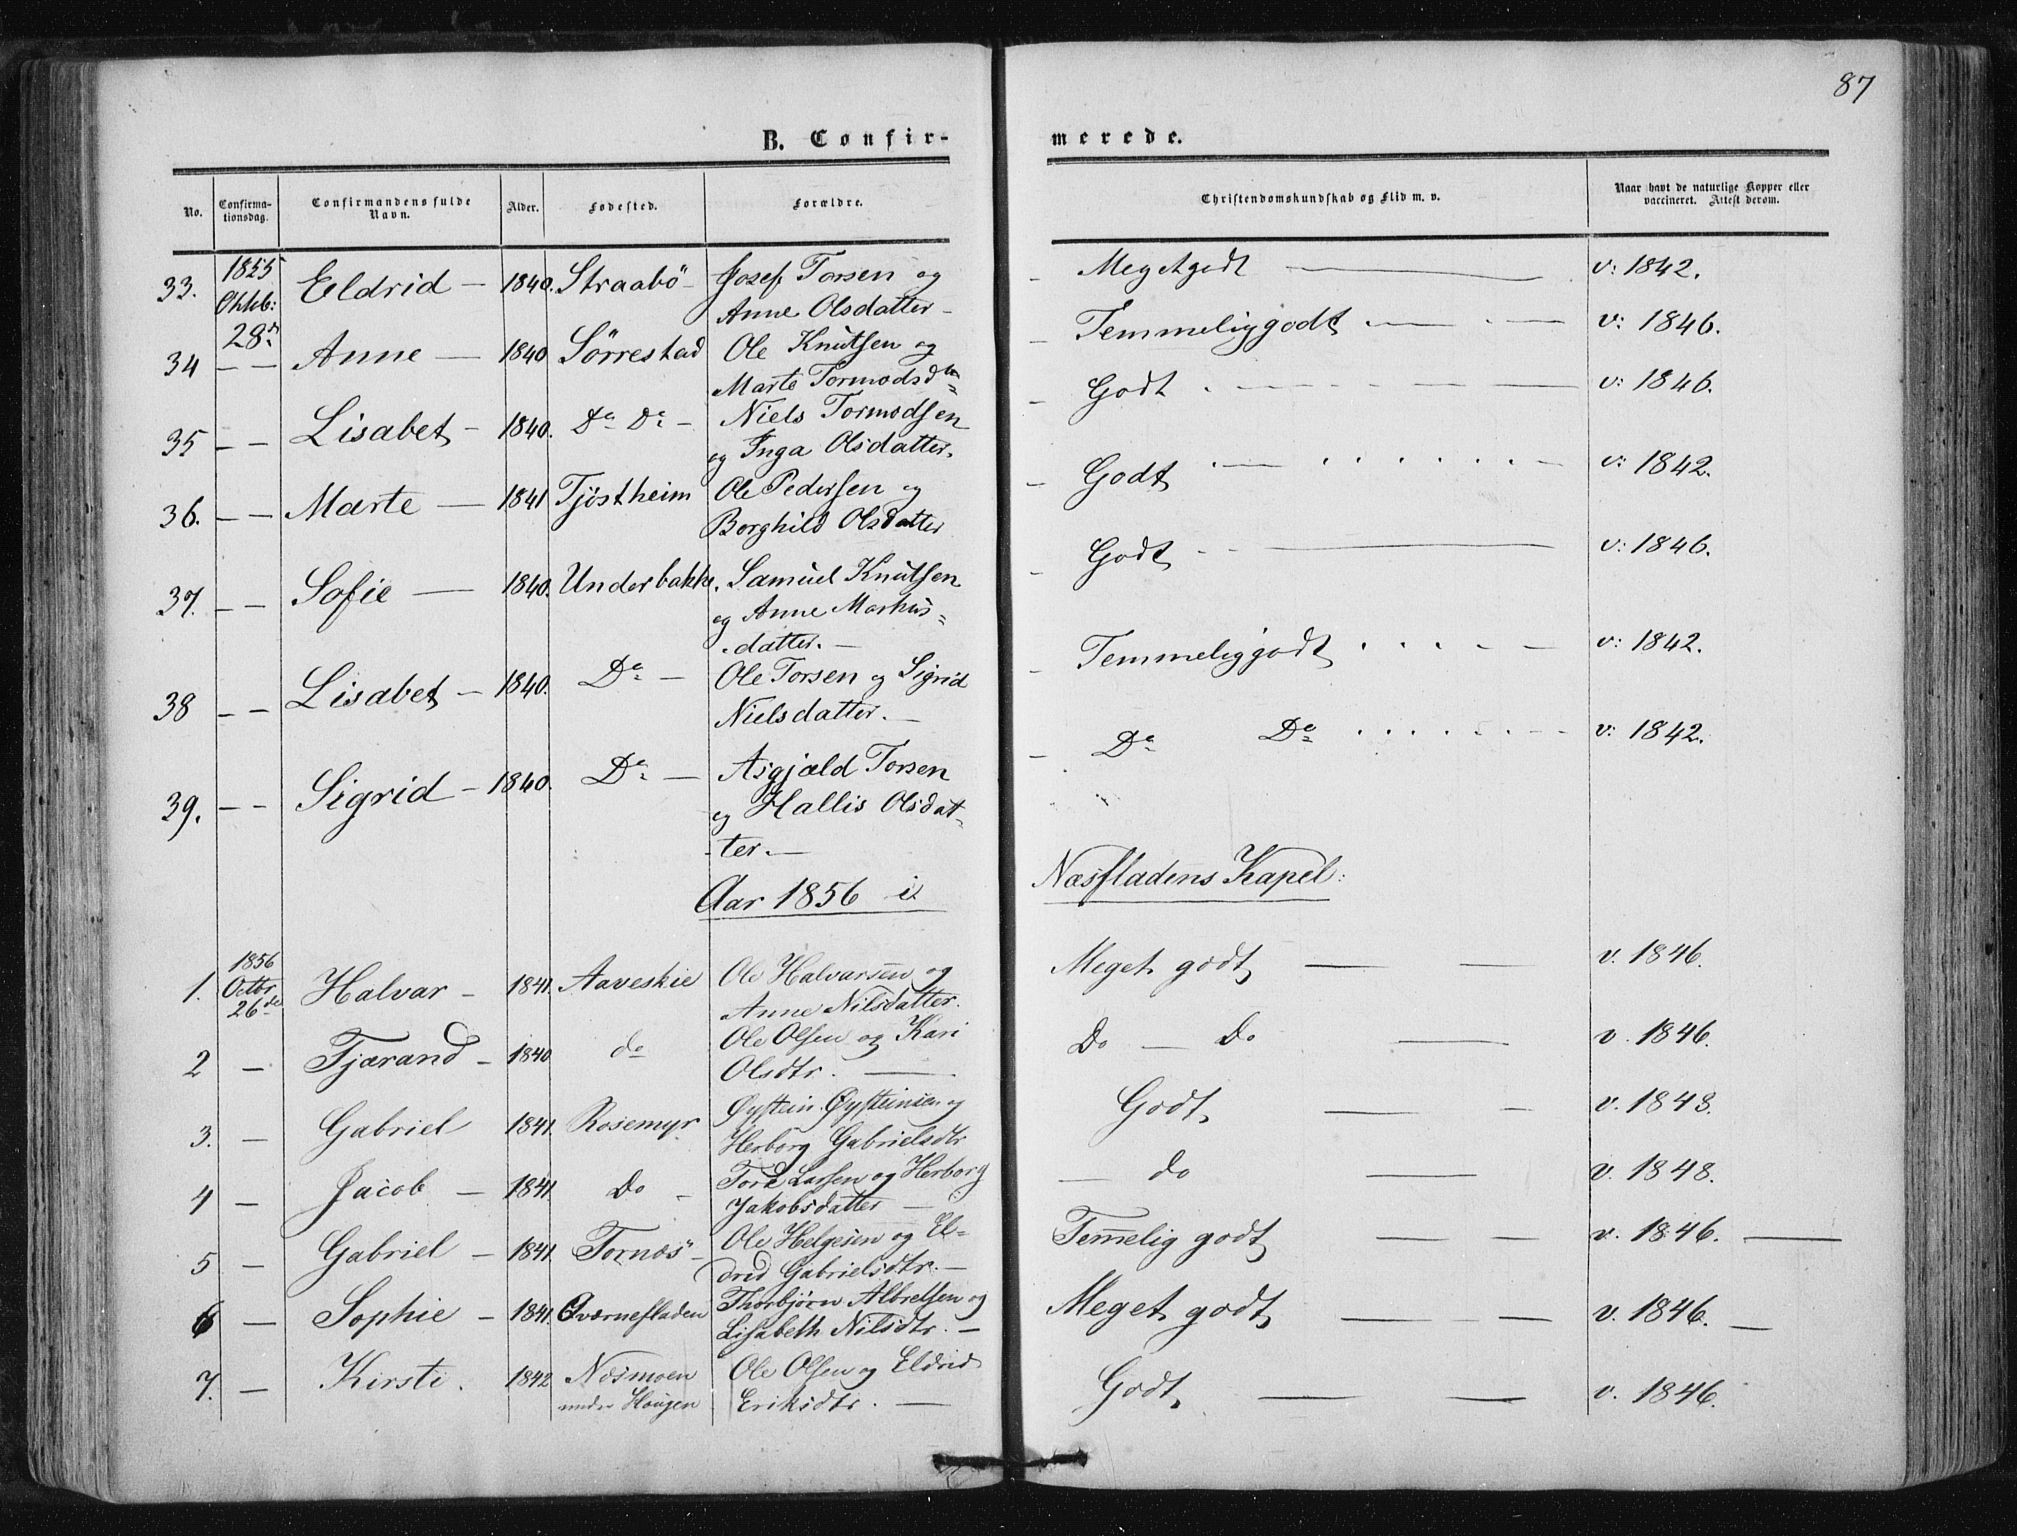 87
B. Confir-
merede.
No.
Confirma-
tionsdag.
Confirmandens fulde
Navn.
Alder.
Fødested.
Forældre.
Christendomskundskab og Flid m. v.
Naar havt de naturlige Kopper eller
vaccineret. Attest derom.
33. 1855 Oktob: 28. Eldrid — 1840. Straabö - Josef Torsen og
Anne Olsdatter -
- Megetgodt — v: 1842.
34 — — Anne — 1840 Sörrestad Ole Knutsen og
Marte Tormodsd
- Temmeliggodt — v: 1846.
35 — — Lisabet - 1840. Do Do - Niels Tormodsen
og Inga Olsdatter.
- Godt — v: 1846.
36. — — Marte — 1841 Tjöstheim Ole Pedersen og
Borghild Olsdatter
- Godt — v: 1842.
37. — — Sofie — 1840. Underbakke. Samuel Knutsen
og Anne Markus=
datter. —
- Godt — v: 1846.
38 — — Lisabet — 1840. Do — Ole Torsen og Sigrid
Nielsdatter. —
- Temmeliggodt — v: 1842.
39. — — Sigrid — 1840. Do — Asgjæld Torsen
og Hallis Olsdat-
-ter. —
- Do Do — v: 1842.
Aar 1856 i
Næsfladens Kapel:
1. 1856 Octbr 26de Halvar - 1841. Aaveskie Ole Halvarsen og
Anne Nilsdatter.
Meget godt — — v. 1846.
2 — Tjærand - 1840 do Ole Olsen og Kari
Olsdtr. —
Do — Do — v. 1846.
3. — Gabriel 1841. Rosemyr Øystein Øysteinsen og
Herborg Gabrielsdtr
Godt — - v. 1848.
4 — Jacob — 1841. Do - Tore Larsen og Herborg
Jakobsdatter —
— do — v. 1848.
5 — Gabriel — 1841. Tornæs - Ole Helgesen og El-
drid Gabrielsdtr. —
Temmelig godt — — v. 1846. —
6 — Sophie - 1841. Qværnefladen Thorbjörn Albretsen og
Lisabeth Nilsdtr. —
Meget godt — — v. 1846. —
7. — Kirsti. 1842 Næsmoen
under Haugen Ole Olsen og Eldrid
Eriksdtr. —
Godt — — v. 1846.